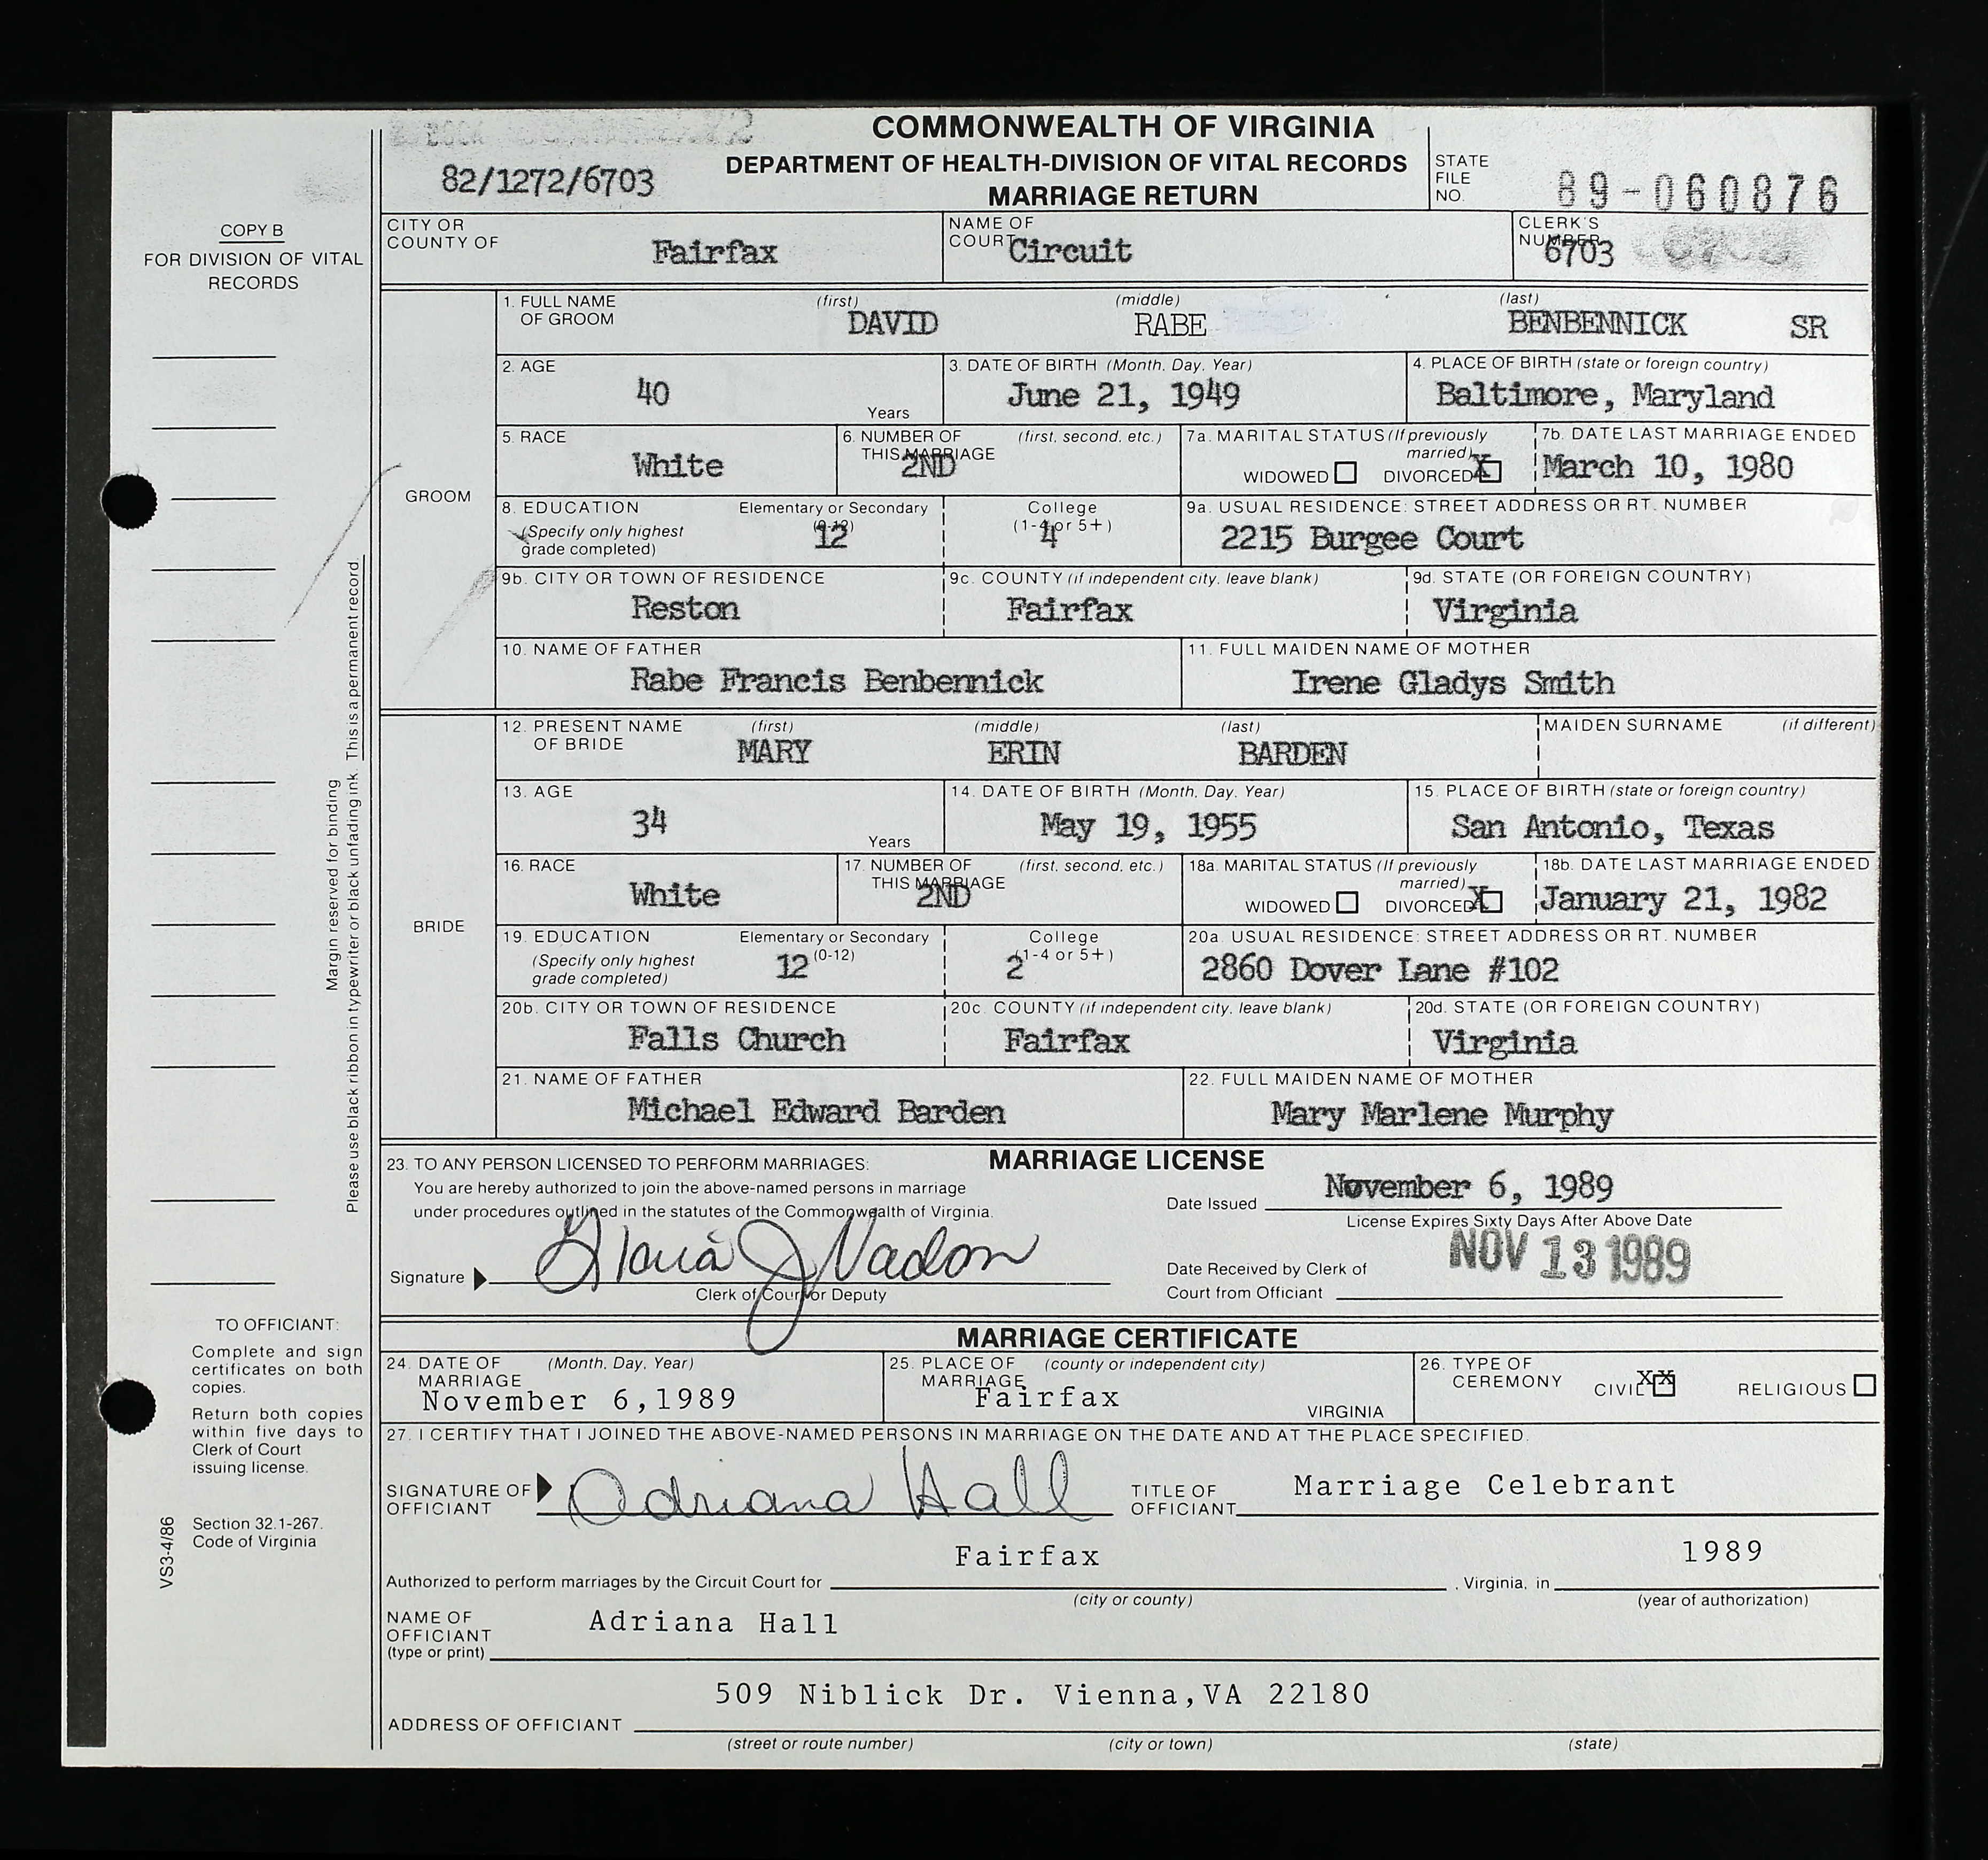 COMMONWEALTH OF VIRGINIA
DEPARTMENT OF HEALTH-DIVISION OF VITAL RECORDS
MARRIAGE RETURN
82/1272/6703
STATE FILE NO. 89-060876
COPY B
FOR DIVISION OF VITAL RECORDS
CITY OR COUNTY OF Fairfax
NAME OF COURT Circuit
CLERK'S NUMBER 6703
GROOM
1. FULL NAME OF GROOM (first) DAVID (middle) RABE (last) BENBENNICK SR
2. AGE 40 Years
3. DATE OF BIRTH (Month, Day, Year) June 21, 1949
4. PLACE OF BIRTH (state or foreign country) Baltimore, Maryland
5. RACE White
6. NUMBER OF THIS MARRIAGE (first, second, etc.) 2ND
7a. MARITAL STATUS (If previously married) WIDOWED DIVORCED X
7b. DATE LAST MARRIAGE ENDED March 10, 1980
8. EDUCATION (Specify only highest grade completed) Elementary or Secondary (0-12) 12 College (1-4 or 5+) 4
9a. USUAL RESIDENCE: STREET ADDRESS OR RT. NUMBER 2215 Burgee Court
9b. CITY OR TOWN OF RESIDENCE Reston
9c. COUNTY (if independent city, leave blank) Fairfax
9d. STATE (OR FOREIGN COUNTRY) Virginia
10. NAME OF FATHER Rabe Francis Benbennick
11. FULL MAIDEN NAME OF MOTHER Irene Gladys Smith
BRIDE
12. PRESENT NAME OF BRIDE (first) MARY (middle) ERIN (last) BARDEN
MAIDEN SURNAME (if different)
13. AGE 34 Years
14. DATE OF BIRTH (Month, Day, Year) May 19, 1955
15. PLACE OF BIRTH (state or foreign country) San Antonio, Texas
16. RACE White
17. NUMBER OF THIS MARRIAGE (first, second, etc.) 2ND
18a. MARITAL STATUS (If previously married) WIDOWED DIVORCED X
18b. DATE LAST MARRIAGE ENDED January 21, 1982
19. EDUCATION (Specify only highest grade completed) Elementary or Secondary (0-12) 12 College (1-4 or 5+) 2
20a. USUAL RESIDENCE: STREET ADDRESS OR RT. NUMBER 2860 Dover Lane #102
20b. CITY OR TOWN OF RESIDENCE Falls Church
20c. COUNTY (if independent city, leave blank) Fairfax
20d. STATE (OR FOREIGN COUNTRY) Virginia
21. NAME OF FATHER Michael Edward Barden
22. FULL MAIDEN NAME OF MOTHER Mary Marlene Murphy
Margin reserved for binding
Please use black ribbon in typewriter or black unfading ink. This is a permanent record.
MARRIAGE LICENSE
23. TO ANY PERSON LICENSED TO PERFORM MARRIAGES:
You are hereby authorized to join the above-named persons in marriage
under procedures outlined in the statutes of the Commonwealth of Virginia.
Date Issued November 6, 1989
License Expires Sixty Days After Above Date
Signature Gloria J Nadon
Clerk of Court or Deputy
Date Received by Clerk of Court from Officiant NOV 13 1989
MARRIAGE CERTIFICATE
24. DATE OF MARRIAGE (Month, Day, Year) November 6,1989
25. PLACE OF MARRIAGE (county or independent city) Fairfax VIRGINIA
26. TYPE OF CEREMONY CIVIL XX RELIGIOUS
27. I CERTIFY THAT I JOINED THE ABOVE-NAMED PERSONS IN MARRIAGE ON THE DATE AND AT THE PLACE SPECIFIED.
SIGNATURE OF OFFICIANT Adriana Hall
TITLE OF OFFICIANT Marriage Celebrant
Authorized to perform marriages by the Circuit Court for Fairfax , Virginia, in 1989
(city or county) (year of authorization)
NAME OF OFFICIANT (type or print) Adriana Hall
ADDRESS OF OFFICIANT 509 Niblick Dr. Vienna,VA 22180
(street or route number) (city or town) (state)
TO OFFICIANT:
Complete and sign
certificates on both
copies.
Return both copies
within five days to
Clerk of Court
issuing license.
Section 32.1-267.
Code of Virginia
VS3-4/86